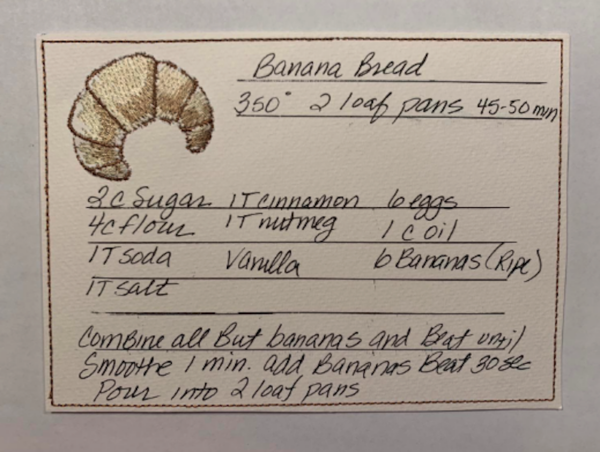 Banana Bread
350° 2 loaf pans 45-50 min
2c Sugar 1T cinnamon 6 eggs
4c flour 1T nutmeg 1 c oil
1T soda Vanilla 6 Bananas (Ripe)
1T salt
Combine all But bananas and Beat until
Smoothe 1 min. add Bananas Beat 30 sec
Pour into 2 loaf pans